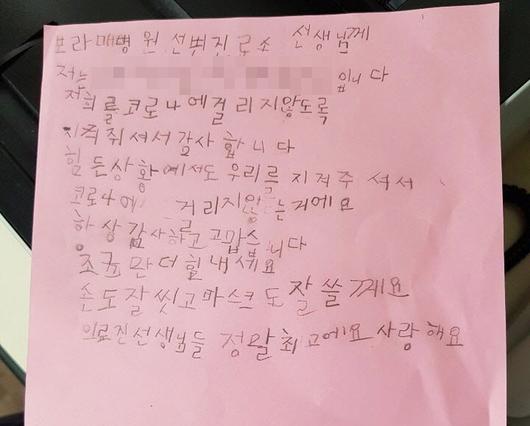 보라매병원 선벼진료소 선생님께
저는 입니다
저희를코로나에걸리지않도록
지켜줘셔서감사합니다
힘든상황에서도우리를지켜주셔서
코로나에 거리지않는거에요
항상감사하고고맙습니다
조금만더힘내세요
손도잘씻고마스크도잘쓸께요
의료진선생님들 정말최고에요사랑해요